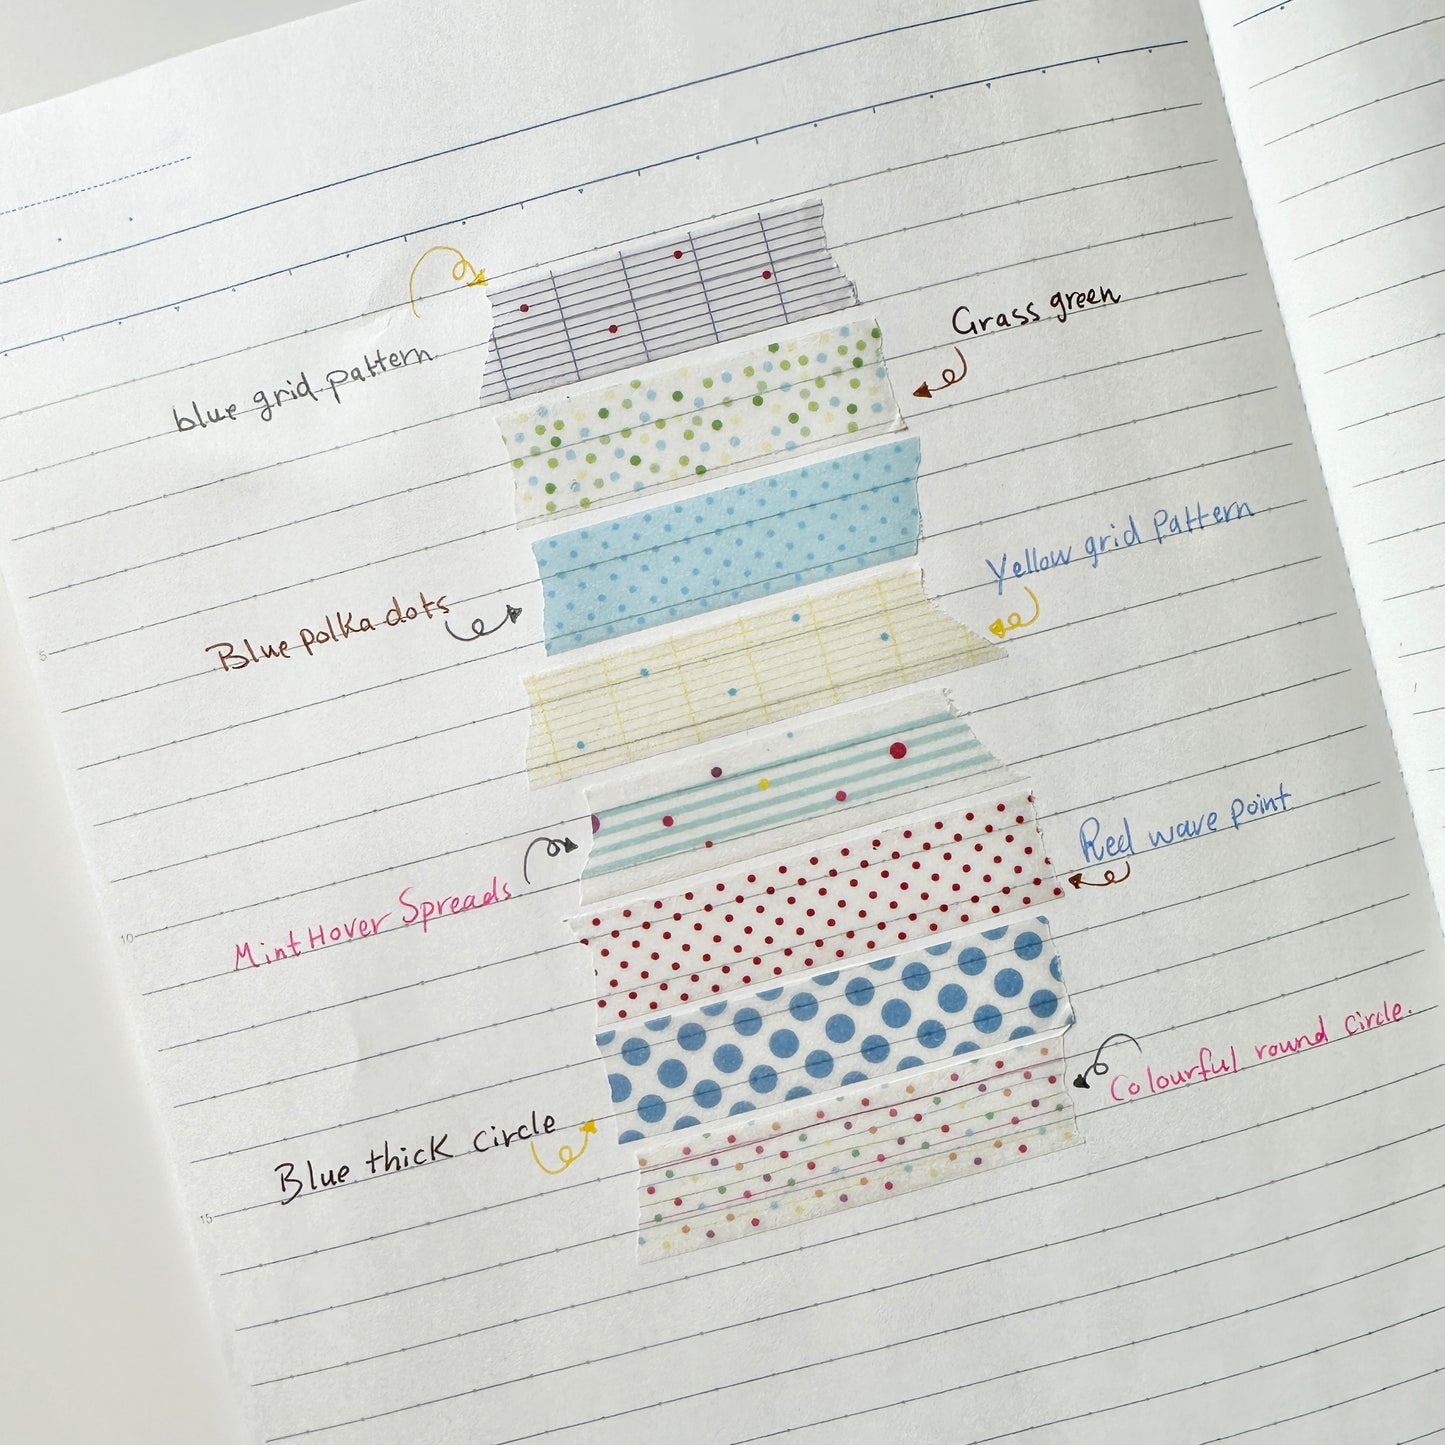 blue grid pattern
Grass green
Blue polka dots
Yellow grid Pattern
Mint Hover Spreads
Red wave point
Blue thick circle
Colourful round circle.
5
10
15